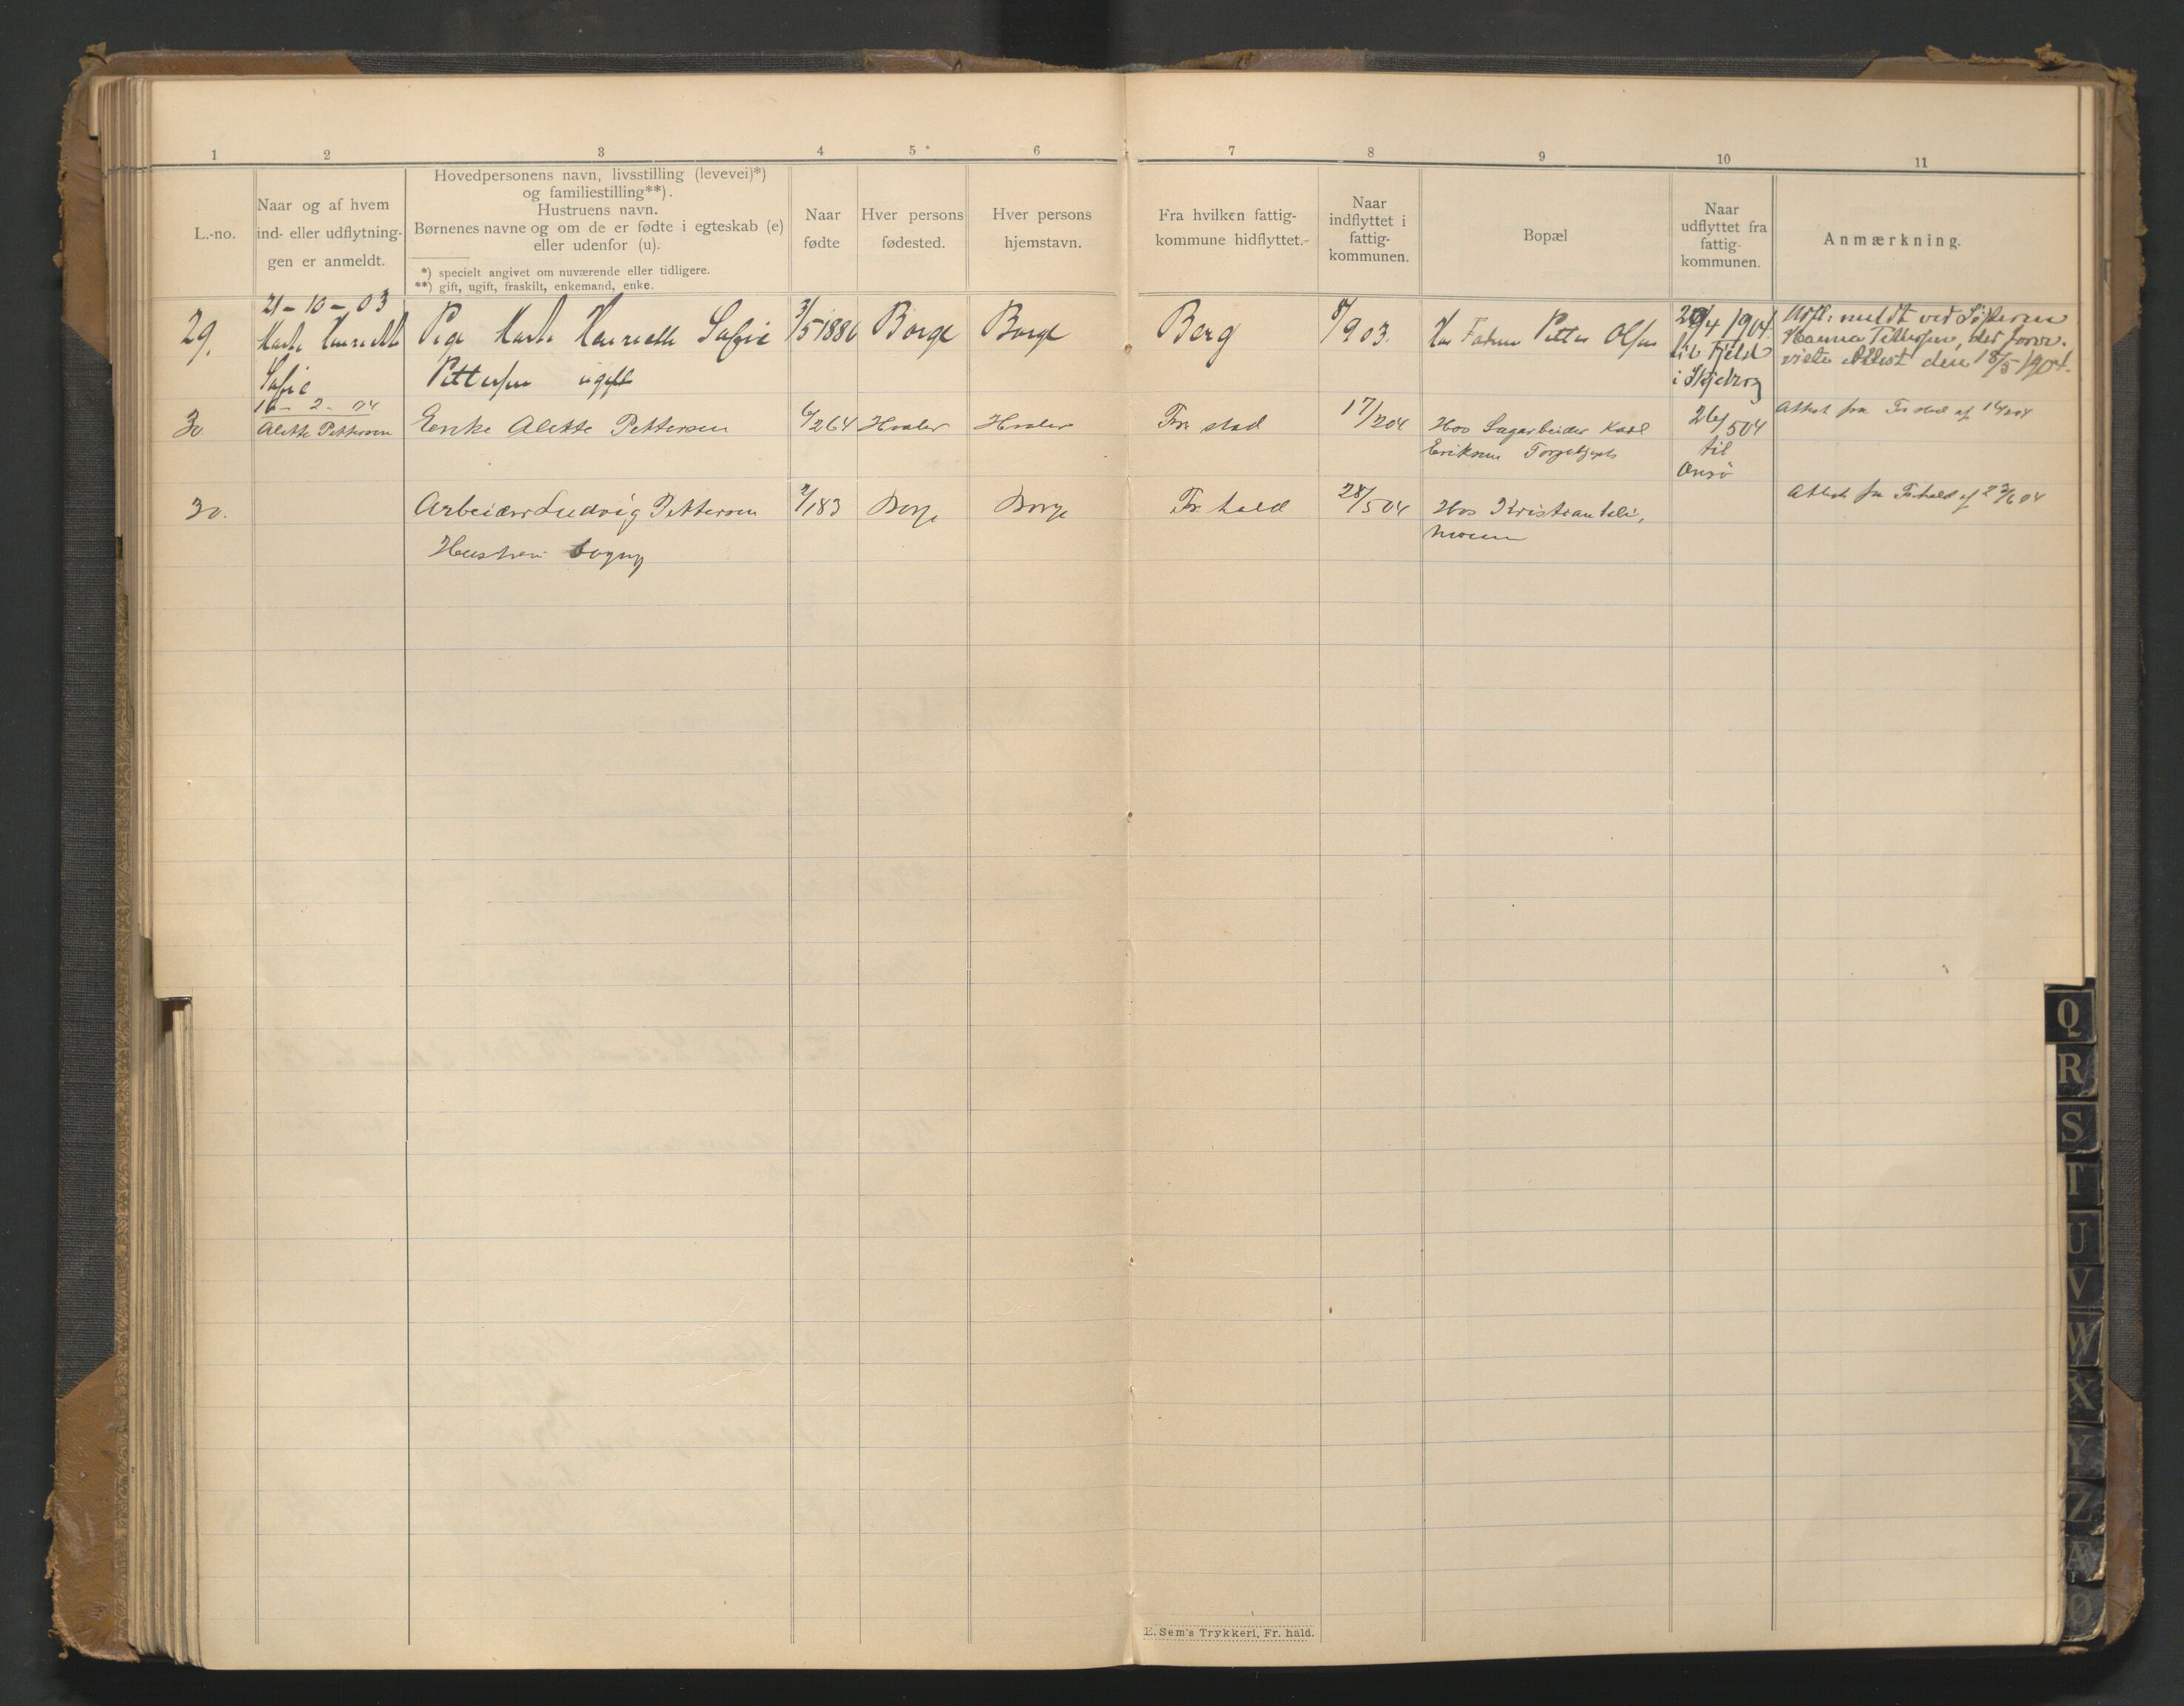 1 2 3 4 5 6 7 8 9 10 11
L.-no.
Naar og af hvem
ind- eller udflytning-
gen er anmeldt.
Hovedpersonens navn, livsstilling (levevei)*)
og familiestilling**).
Hustruens navn.
Børnenes navne og om de er fødte i egteskab (e)
eller udenfor (u).
*) specielt angivet om nuværende eller tidligere.
**) gift, ugift, fraskilt, enkemand, enke.
Naar
fødte
Hver persons
fødested.
Hver persons
hjemstavn.
Fra hvilken fattig-
kommune hidflyttet.
Naar
indflyttet i
fattig-
kommunen.
Bopæl
Naar
udflyttet fra
fattig-
kommunen.
Anmærkning.
29.
21-10-03
Sofie
Pige Henriette Sofie
Pettersen ugift
3/5 1886
Borge
Borge
Berg
8/9 03.
Hos Faderen Petter Olsen
29/4 1904.
til Fjeld
i Skjeberg
Udfl: meldt ved Søsteren
Hanna Pettersen, der forev.
viste Attest den 18/5 1904.
30.
16-2-04
Alette Pettersen
Enke Alette Pettersen
6/2 64
Hvaler
Hvaler
Fr. stad
17/2 04
Hos Sagarbeider Karl
Eriksen
26/5 04
til
Onsø
Attest fra Fr. stad af
30.
Arbeider Ludvig Pettersen
Hustru
2/1 83
Borge
Borge
Fr. hald
28/5 04
Hos
Attest fra Fr. hald af 23/6 04
E. Sem's Trykkeri, Fr. hald.
Q
R
S
T
U
V
W
X
Y
Z
Æ
Ø